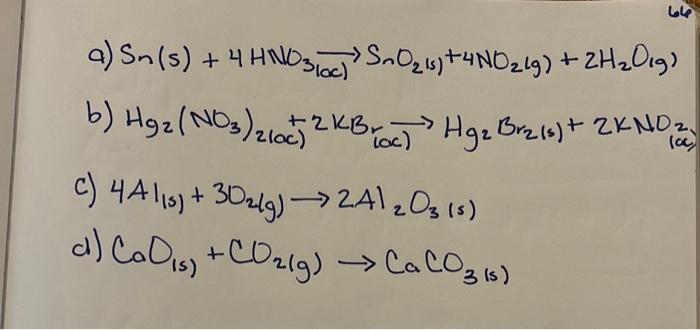 66
a) Sn(s) + 4HNO3(ac) → SnO2(s)+4NO2(g) + 2H2O(g)
b) Hg2(NO3)2(ac) + 2KBr(ac) → Hg2Br2(s) + 2KNO3(ac)
c) 4Al(s) + 3O2(g) → 2Al2O3(s)
d) CaO(s) + CO2(g) → CaCO3(s)